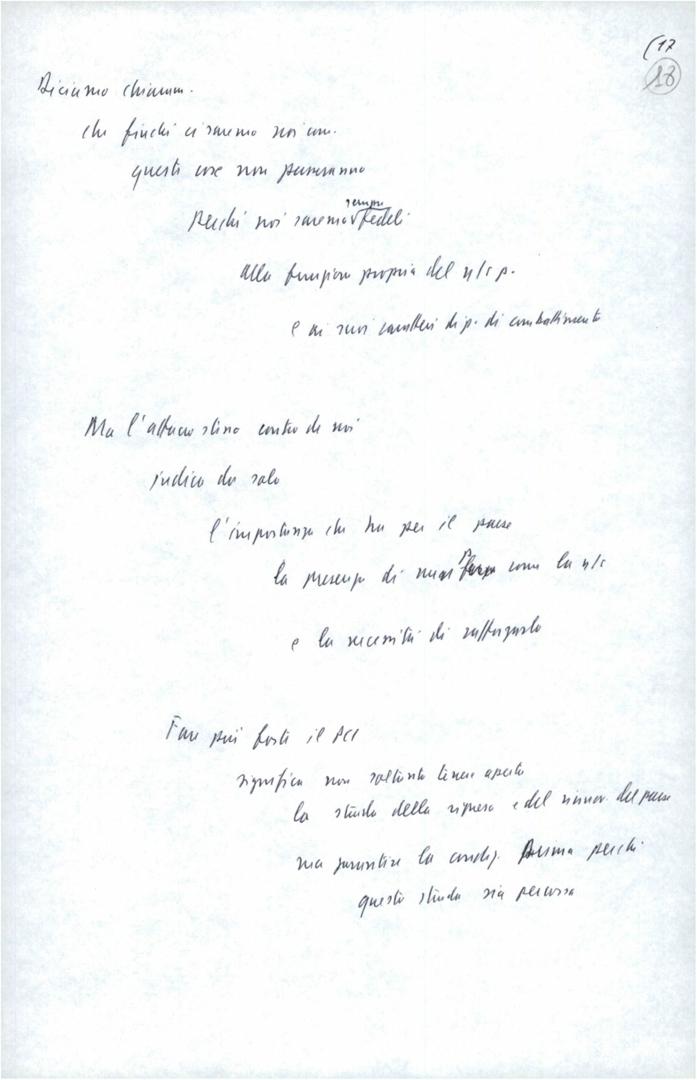 (17
18
Diciamo chiaram.
che finché ci saremo noi com.
queste cose non passeranno
Perché noi saremo sempre fedeli
alla funzione propria del n/s p.
e ai suoi caratteri di p. di combattimento
Ma l'attacco stesso contro di noi
indica da solo
l'importanza che ha per il paese
la presenza di una forza come la n/s
e la necessità di rafforzarla
Fare più forte il PCI
significa non soltanto tenere aperta
la strada della ripresa e del rinnov. del paese
ma garantire la condiz. prima perché
questa strada sia percorsa